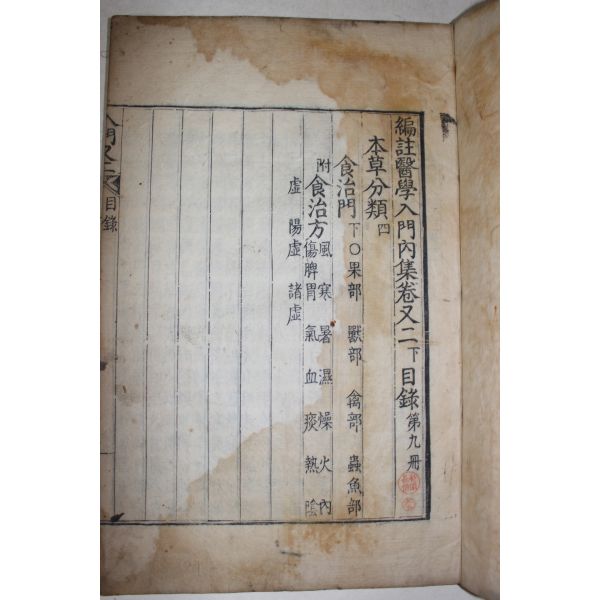 編註醫學入門內集卷又二下目錄 第九冊
本草分類四
食治門下○果部 獸部 禽部 蟲魚部
附食治方風寒暑濕燥火內
傷脾胃氣血痰熱陰
虛陽虛諸虛
入門又二 目錄